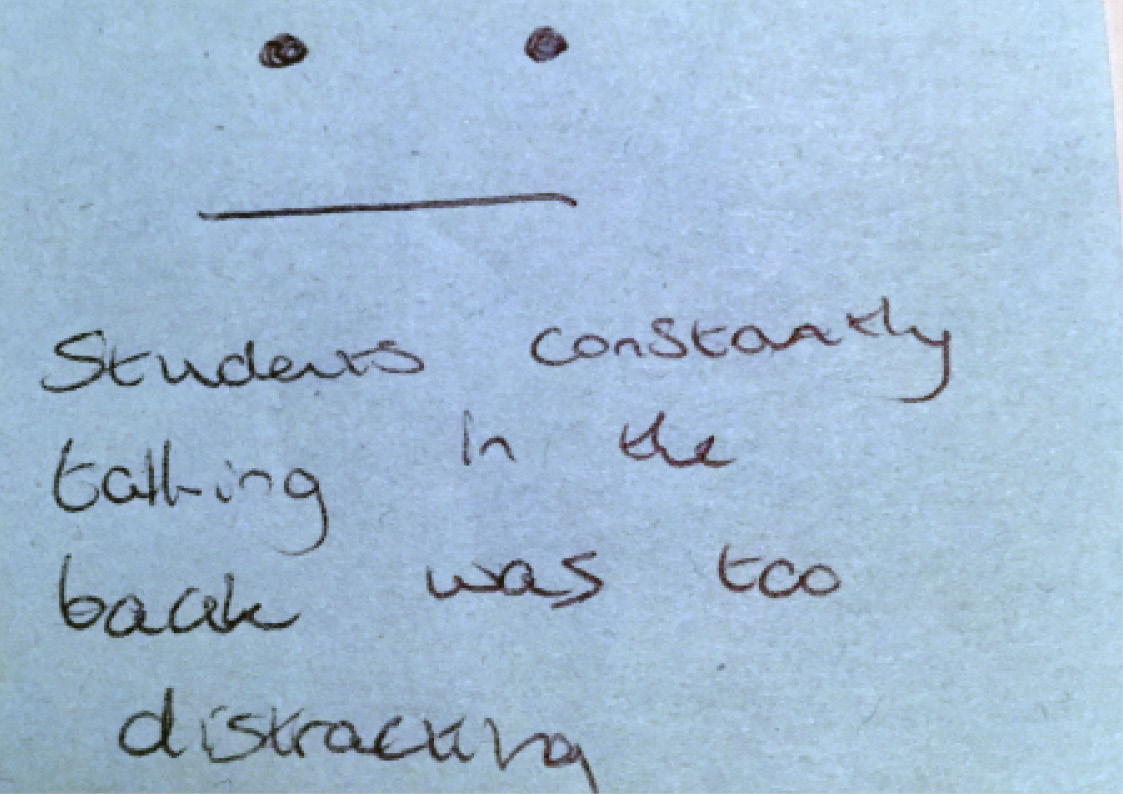 Students constantly
talking in the
back was too
distracting